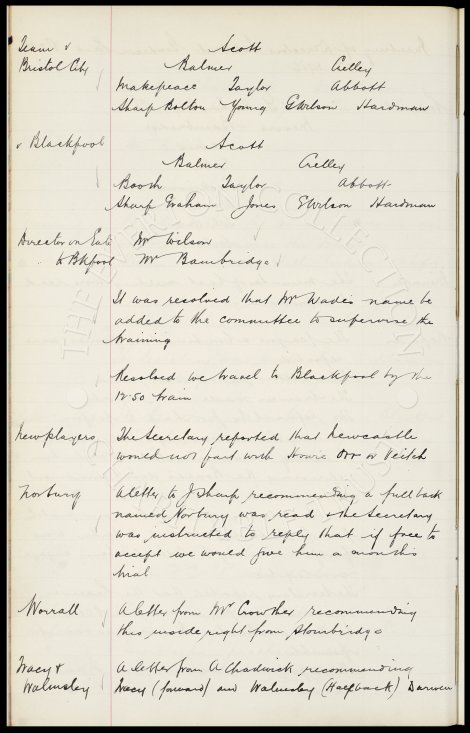 Team v Scott
Bristol City Balmer Crelley
Makepeace Taylor Abbott
Sharp Bolton Young G Wilson Hardman
v Blackpool Scott
Balmer Crelley
Booth Taylor Abbott
Sharp Graham Jones G Wilson Hardman
Director on Gate Mr Wilson
to Bkpool Mr Bainbridge
It was resolved that Mr Wade's name be
added to the committee to supervise the
training
Resolved we travel to Blackpool by the
12.50 train
New players The Secretary reported that Newcastle
would not part with Howie Orr or Veitch
Norbury A letter to J Sharp recommending a full back
named Norbury was read & the Secretary
was instructed to reply that if free to
accept we would give him a months
trial
Worrall A letter from Mr Crowther recommending
this inside right from Stourbridge
Tracy & A letter from A Chadwick recommending
Walmsley Tracy (forward) and Walmsley (Halfback) Darwen
THE EVERTON COLLECTION